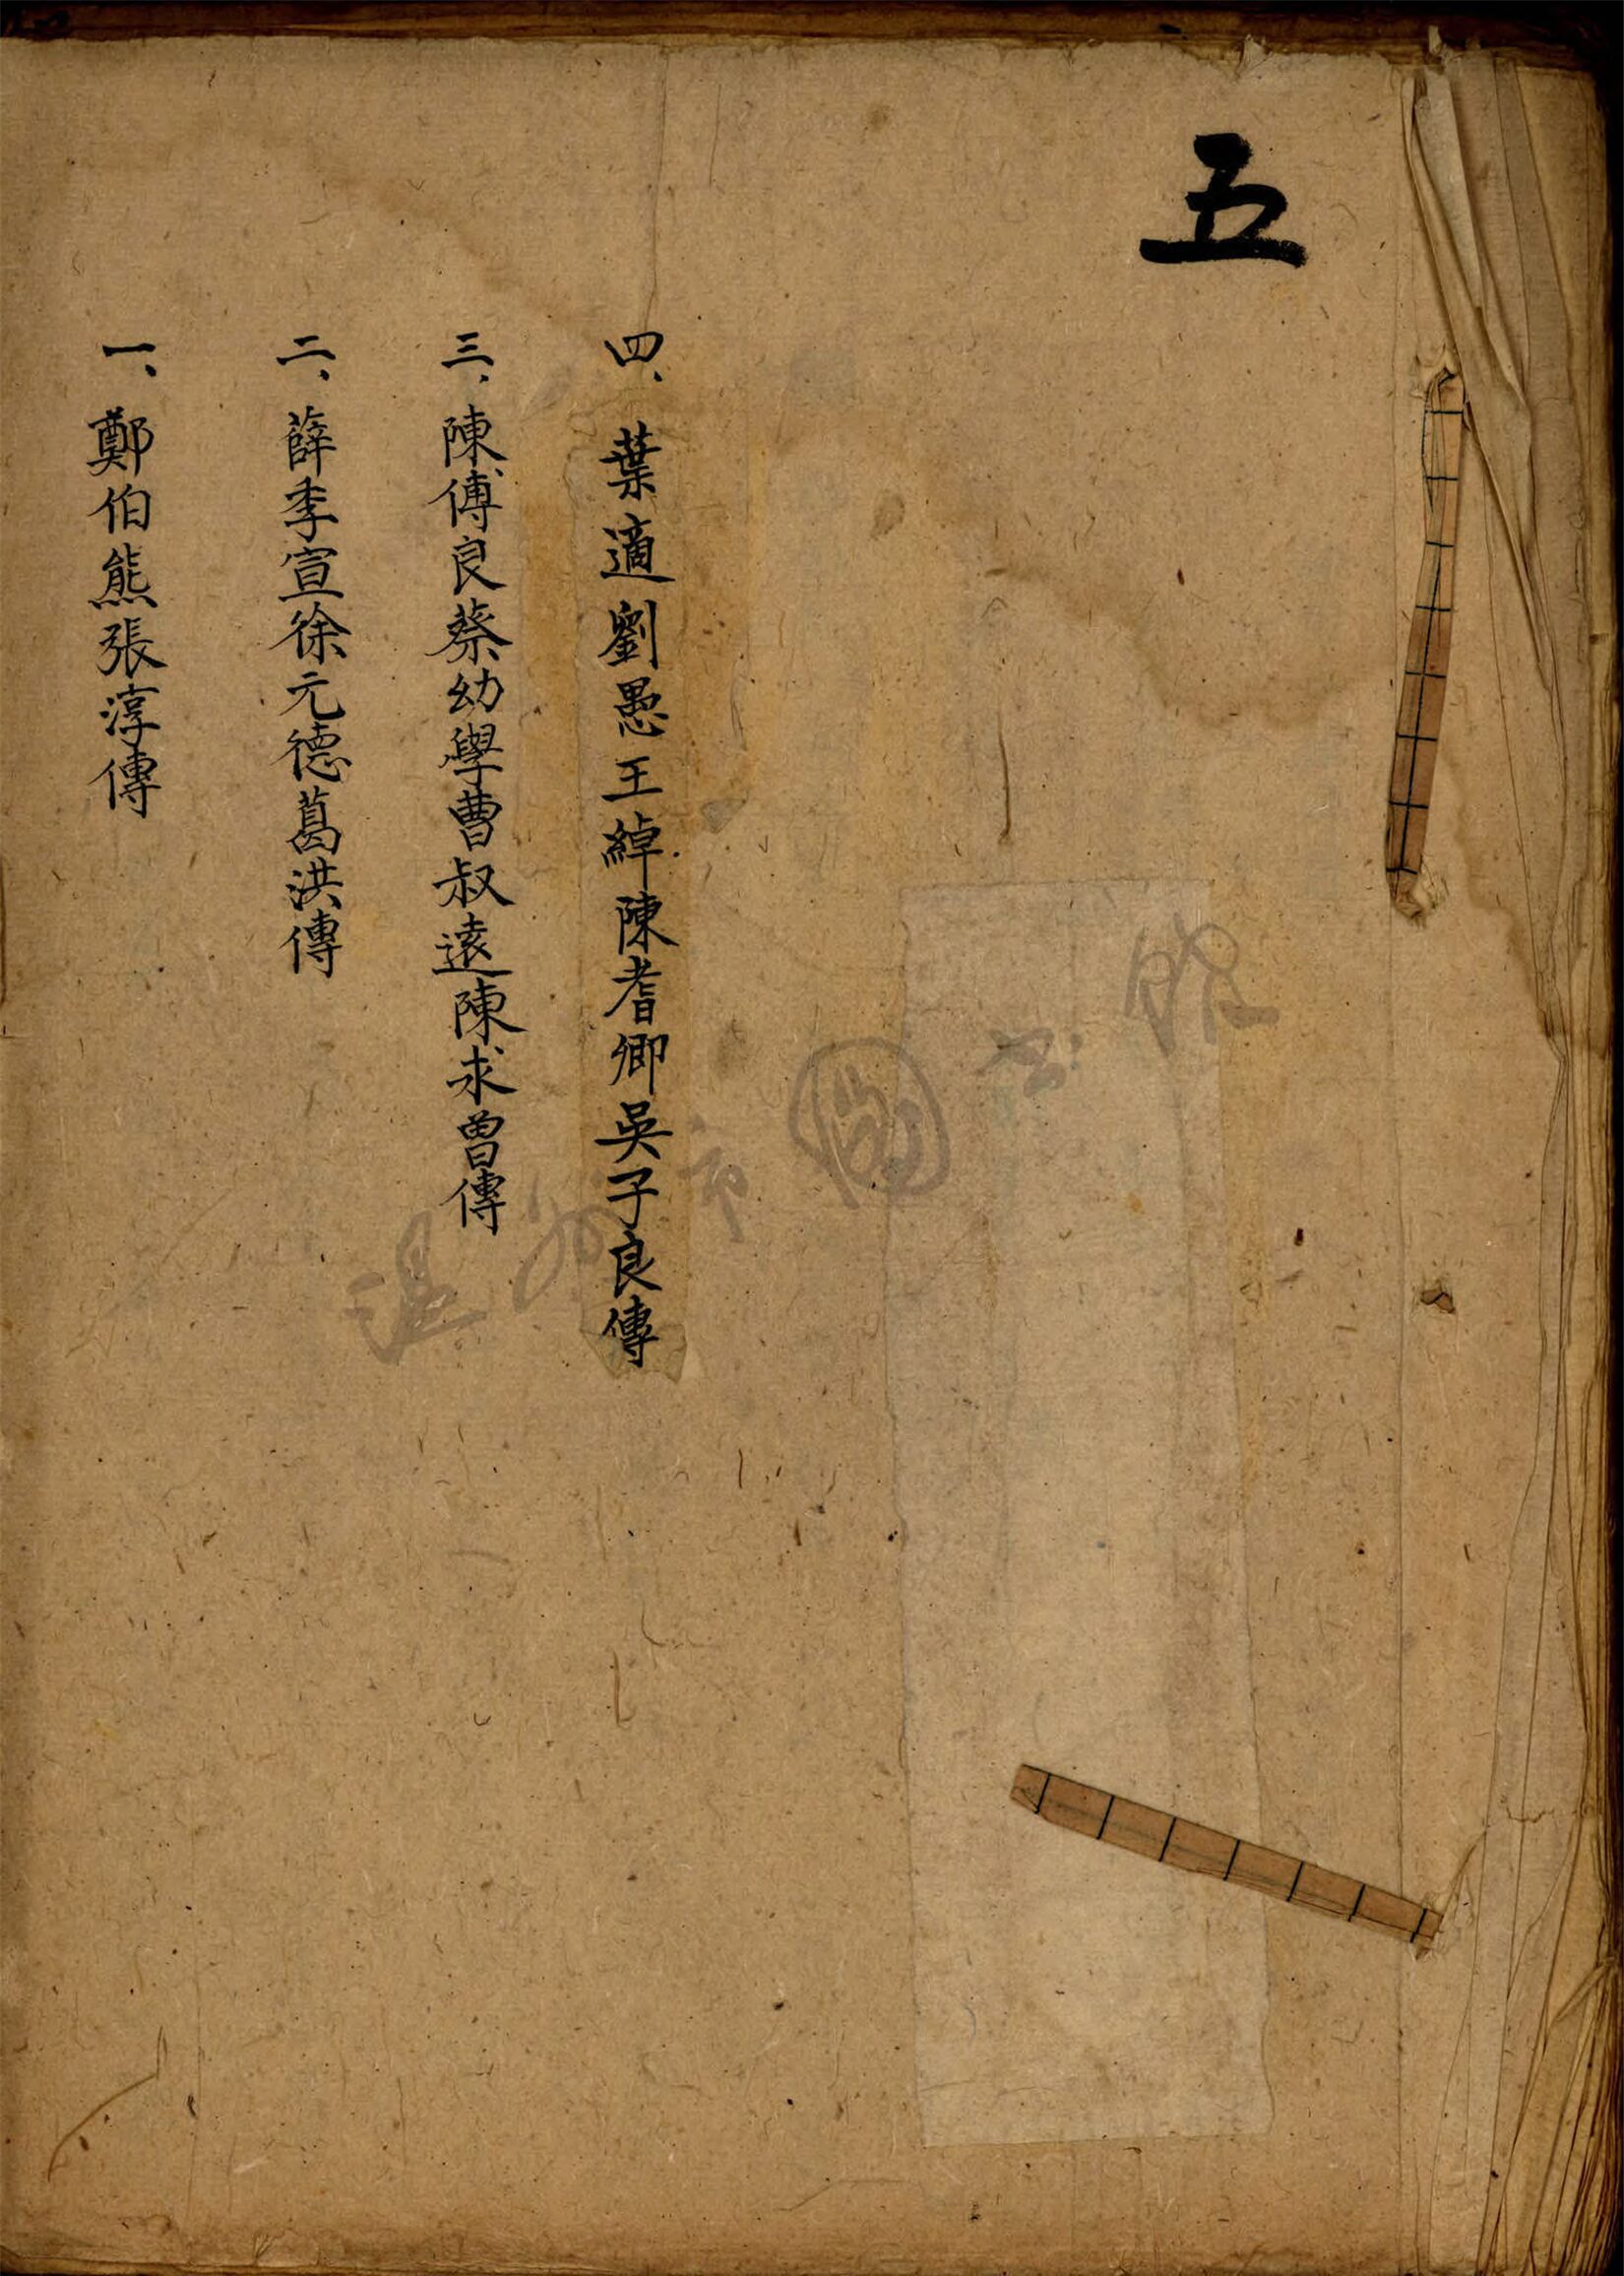 五
四、葉適劉愚王綽陳耆卿吳子良傳
三、陳傅良蔡幼學曹叔遠陳求曾傳
二、薛季宣徐元德葛洪傳
一、鄭伯熊張淳傳
温州市圖书館